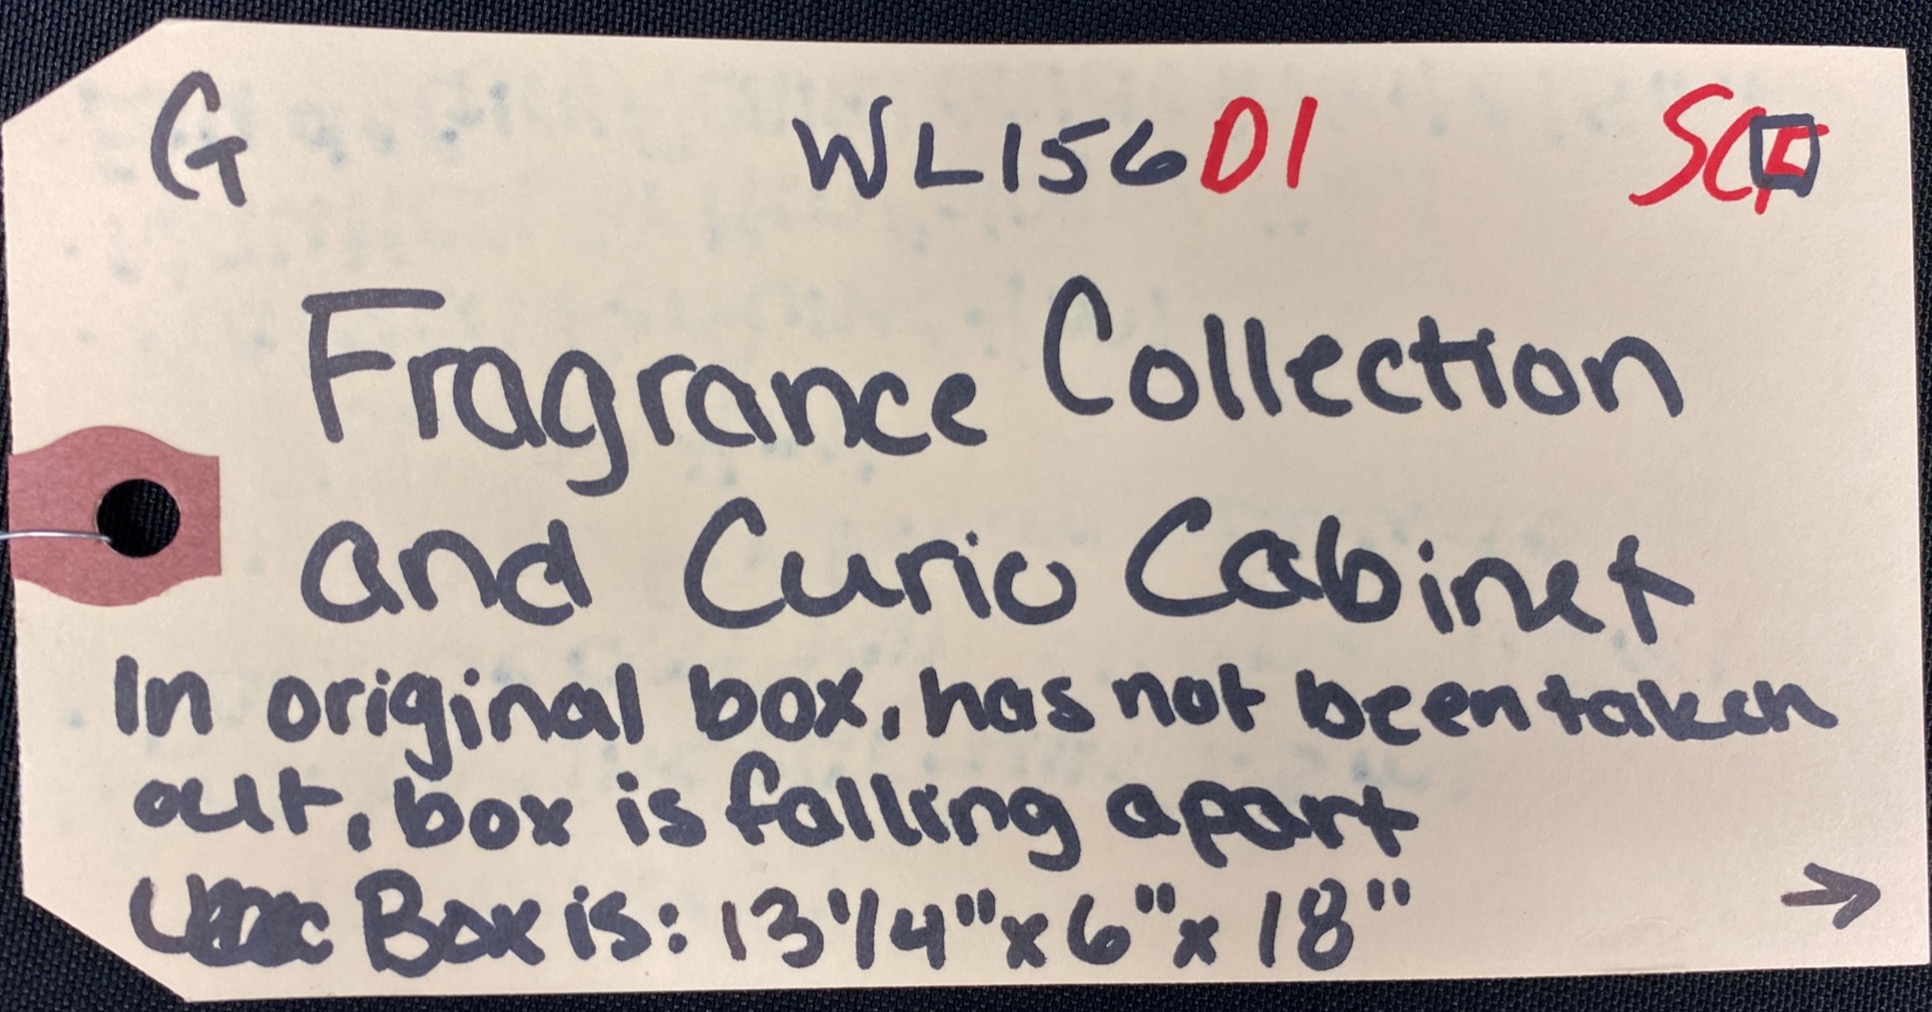 G WL156D1 SCF
Fragrance Collection
and Curio Cabinet
In original box, has not been taken
out, box is falling apart
Box is: 13 1/4" x 6" x 18"
→